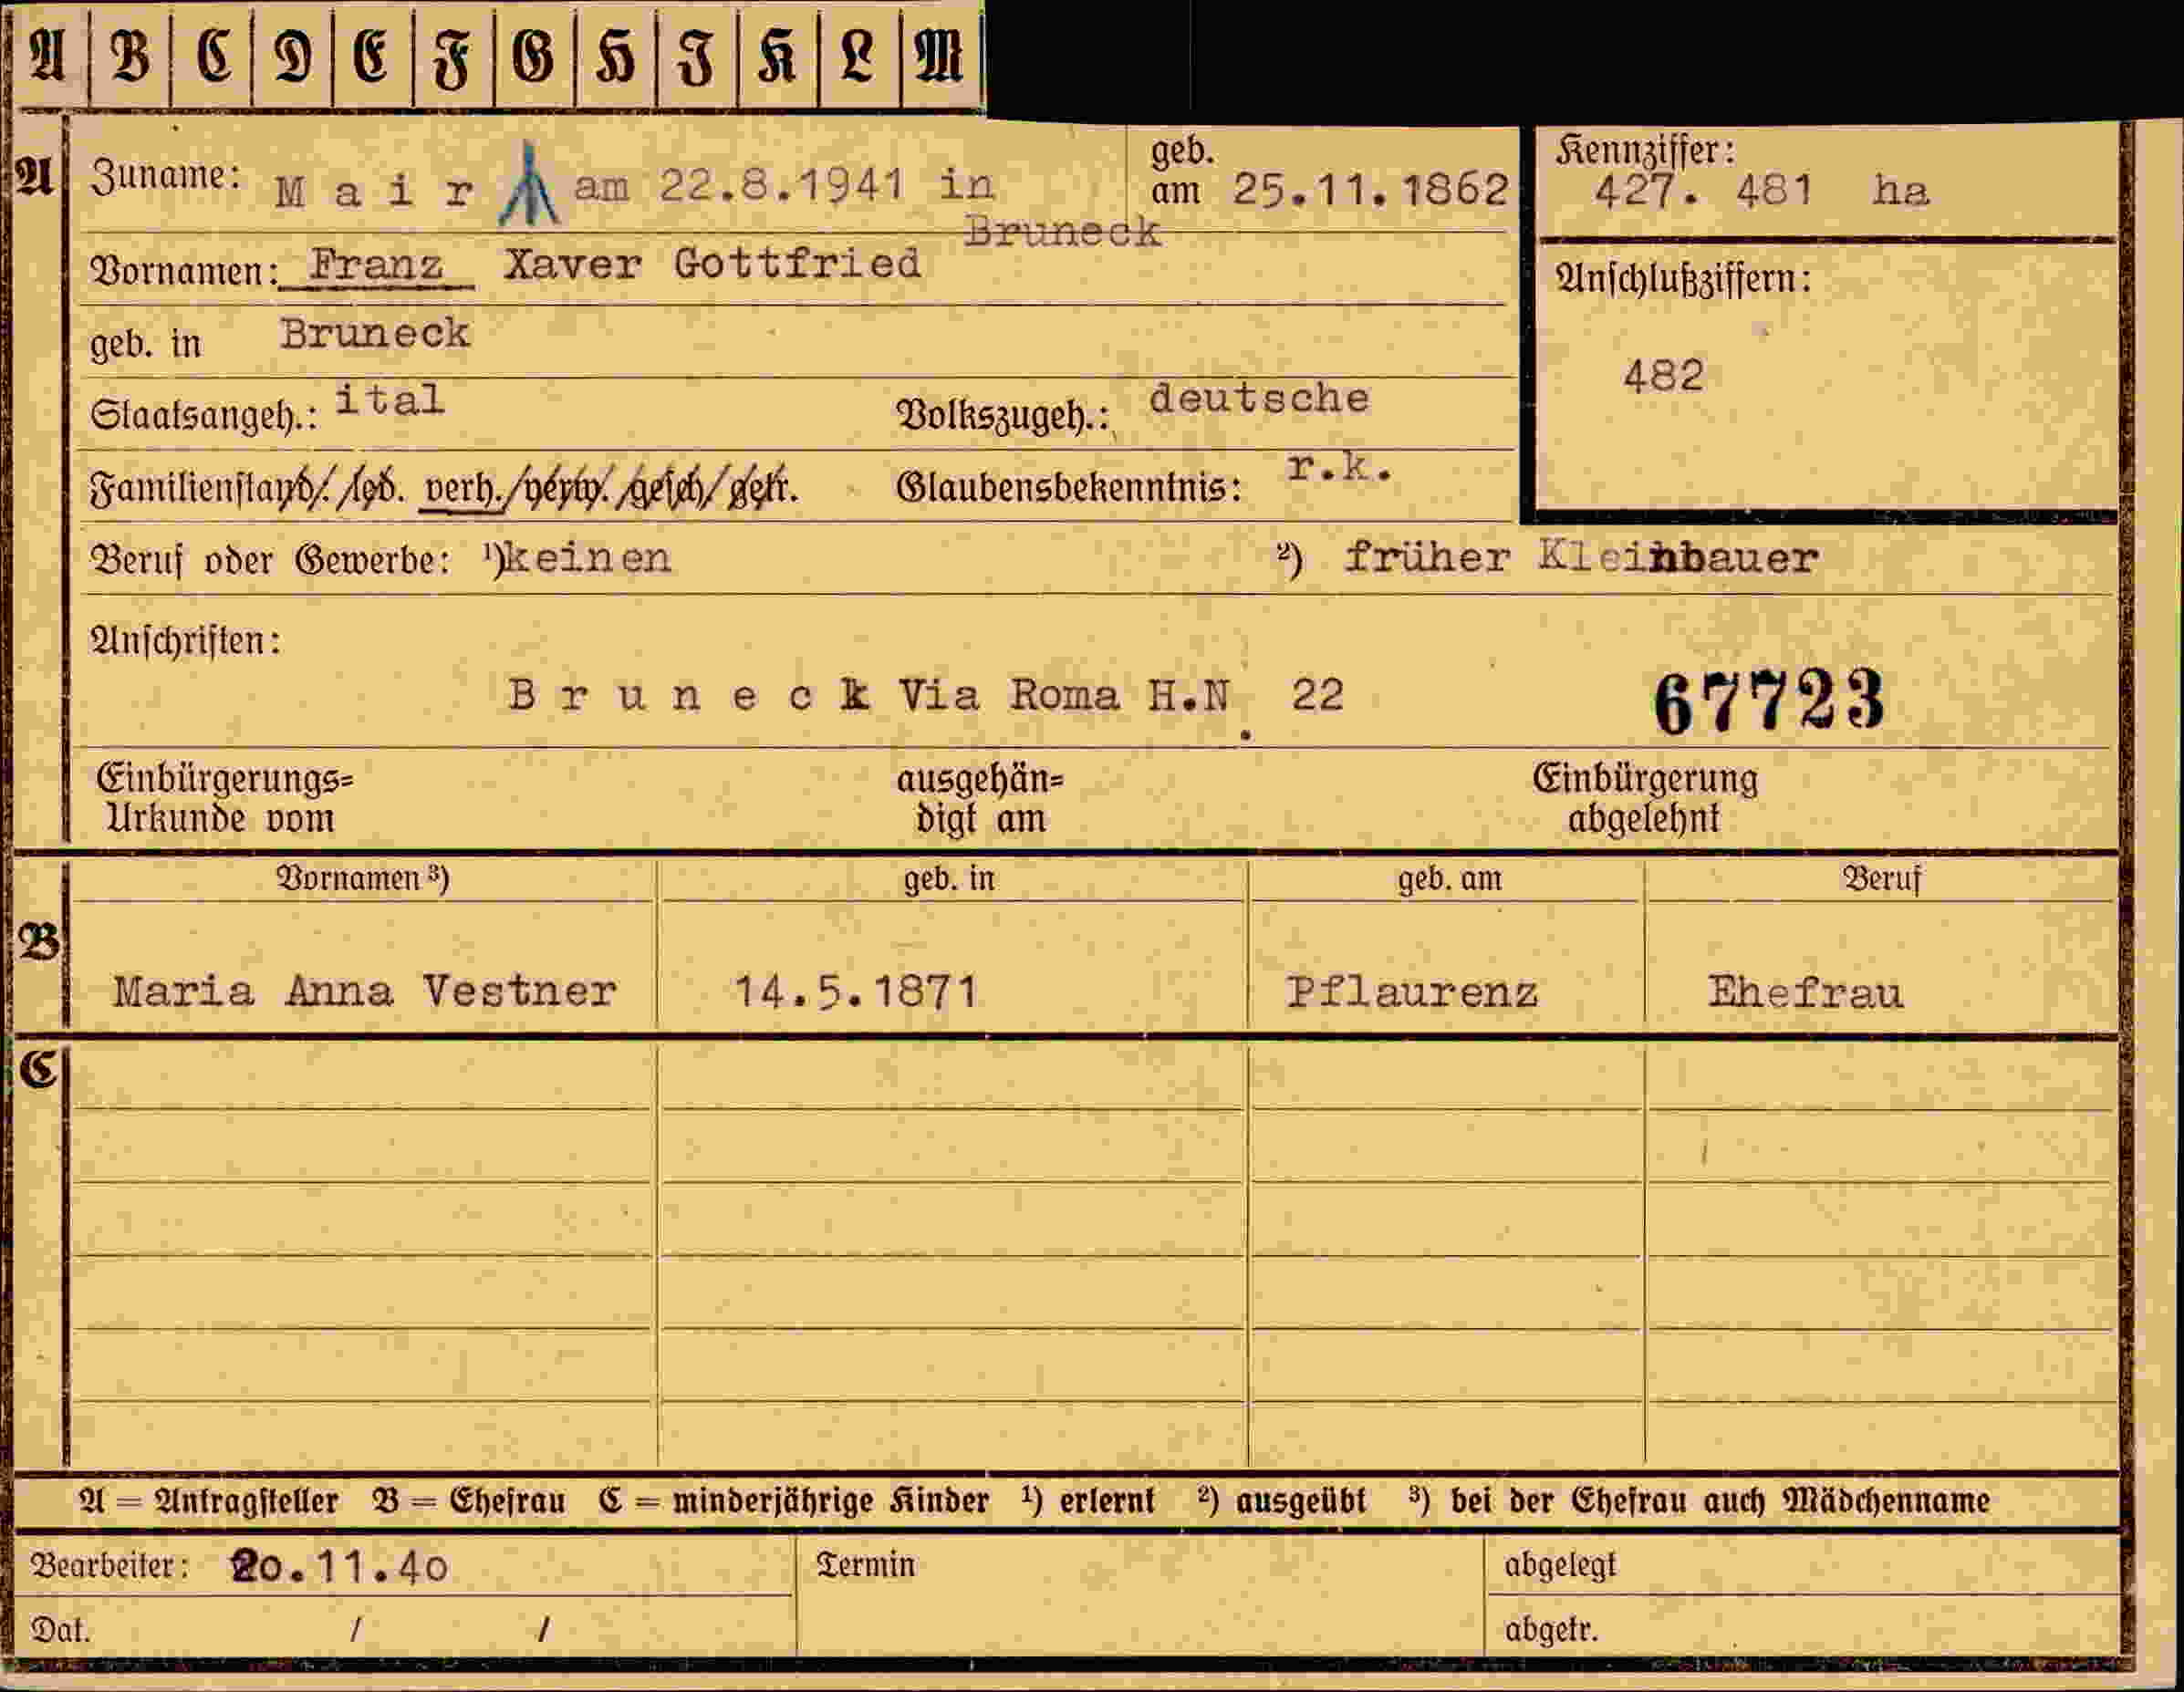 A B C D E F G H I K L M
A Zuname: M a i r ᛦ am 22.8.1941 in Bruneck geb. am 25.11.1862
Kennziffer: 427. 481 ha
Vornamen: Franz Xaver Gottfried
Anschlußziffern:
482
geb. in Bruneck
Staatsangeh.: ital Volkszugeh.: deutsche
Familienstand/. led. verh./verw./gesch/getr. Glaubensbekenntnis: r.k.
Beruf oder Gewerbe: ¹) keinen ²) früher Kleinbauer
Anschriften:
B r u n e c k Via Roma H.N. 22
67723
Einbürgerungs= ausgehän= Einbürgerung
Urkunde vom digt am abgelehnt
Vornamen ³) geb. in geb. am Beruf
B
Maria Anna Vestner 14.5.1871 Pflaurenz Ehefrau
C
A = Antragsteller B = Ehefrau C = minderjährige Kinder ¹) erlernt ²) ausgeübt ³) bei der Ehefrau auch Mädchenname
Bearbeiter: 20.11.40 Termin abgelegt
Dat. / / abgetr.